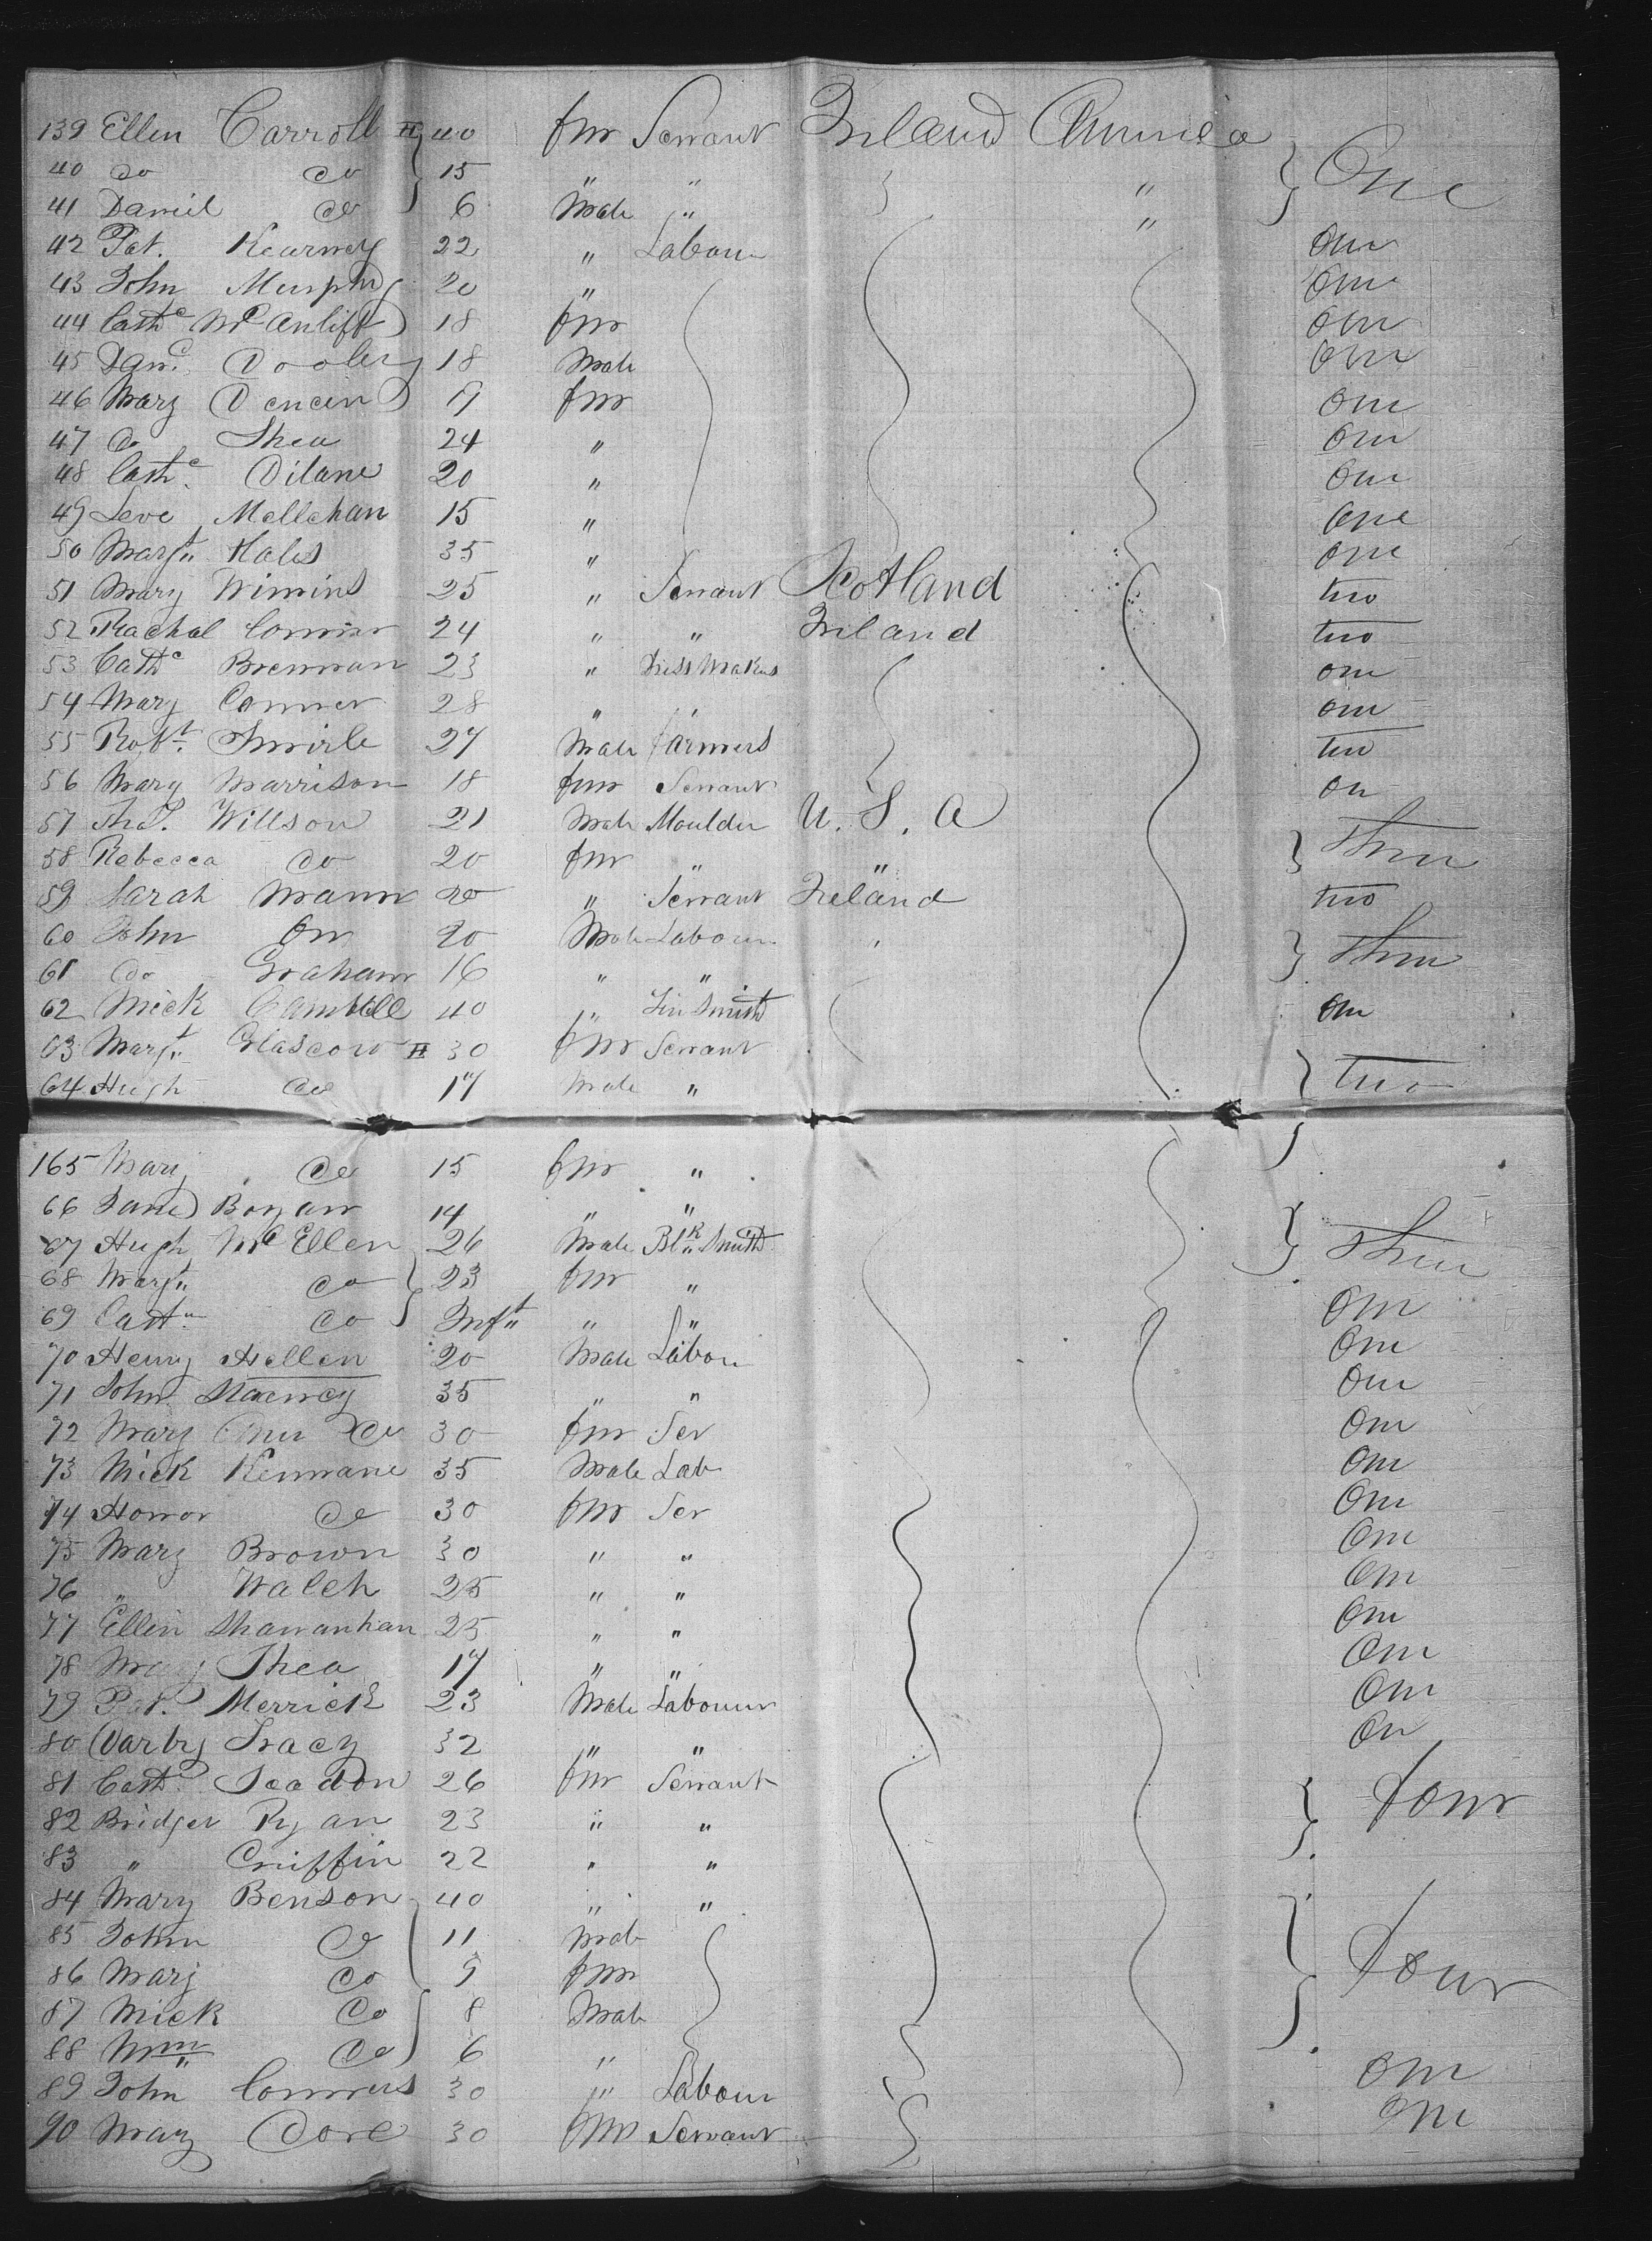 139 Ellen Carroll 40 fm Servant Ireland America
40 do do 15 " " " One
41 Daniel do 6 Male " "
42 Pat. Kearney 22 " Labour One
43 John Murphy 20 " One
44 Cathe McAnliff 18 fm One
45 Danl. Dooley 18 Male One
46 Mary Dencin 19 fm One
47 do Shea 24 " One
48 Cathe Dilane 20 " One
49 Leve Mellehan 15 " One
50 Margt Hales 35 " One
51 Mary Wimins 25 " Servant Scotland two
52 Rachal Conner 24 " " Ireland two
53 Cathe Brennan 23 " Dress Makers one
54 Mary Conner 28 " one
55 Robt. Smirle 27 Male farmers two
56 Mary Marrison 18 fem Servant on
57 Thos. Willson 21 Male Moulder U. S. A
58 Rebecca do 20 fm " " Three
59 Sarah Mann 20 " Servant Ireland two
60 John Orr 20 Male Labour " Three
61 do Graham 16 " "
62 Mick Cambell 40 " Tin Smith one
63 Margt Glascow 30 fm Servant
64 Hugh do 17 Male " two
165 Mary do 15 fm "
66 Jane Bogan 14 " "
67 Hugh McEllen 26 Male Blk Smith Three
68 Margt do 23 fm "
69 Cath do Inft " " One
70 Henry Hellen 20 Male Labou One
71 John Starney 35 " " One
72 Mary Ann do 30 fm Ser One
73 Mick Kennane 35 Male Lab One
74 Honor do 30 fm Ser One
75 Mary Brown 30 " " One
76 " Walch 25 " " One
77 Ellen Shanankan 25 " " One
78 Mary Shea 17 " " One
79 Pat. Merrick 23 Male Labourer One
80 Darby Tracy 32 " " On
81 Cathe Scadon 26 fm Servant four
82 Bridget Ryan 23 " "
83 " Criffin 22 " "
84 Mary Benson 40 " "
85 John do 11 Male
86 Mary do 9 fm four
87 Mick do 8 Male
88 Wm do 6 "
89 John Conners 30 " Labour One
90 Mary Dore 30 fm Servant One